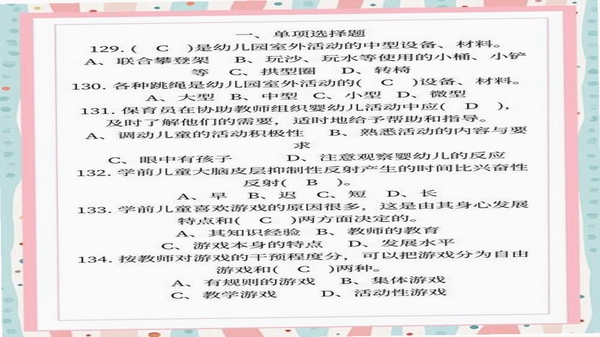 一、单项选择题
129. ( C )是幼儿园室外活动的中型设备、材料。
A、联合攀登架 B、玩沙、玩水等使用的小桶、小铲
等 C、拱型圈 D、转椅
130. 各种跳绳是幼儿园室外活动的( C )设备、材料。
A、大型 B、中型 C、小型 D、微型
131. 保育员在协助教师组织婴幼儿活动中应( D ),
及时了解他们的需要，适时地给予帮助和指导。
A、调动儿童的活动积极性 B、熟悉活动的内容与要
求
C、眼中有孩子 D、注意观察婴幼儿的反应
132. 学前儿童大脑皮层抑制性反射产生的时间比兴奋性
反射( B )。
A、早 B、迟 C、短 D、长
133. 学前儿童喜欢游戏的原因很多，这是由其身心发展
特点和( C )两方面决定的。
A、其知识经验 B、教师的教育
C、游戏本身的特点 D、发展水平
134. 按教师对游戏的干预程度分，可以把游戏分为自由
游戏和( C )两种。
A、有规则的游戏 B、集体游戏
C、教学游戏 D、活动性游戏